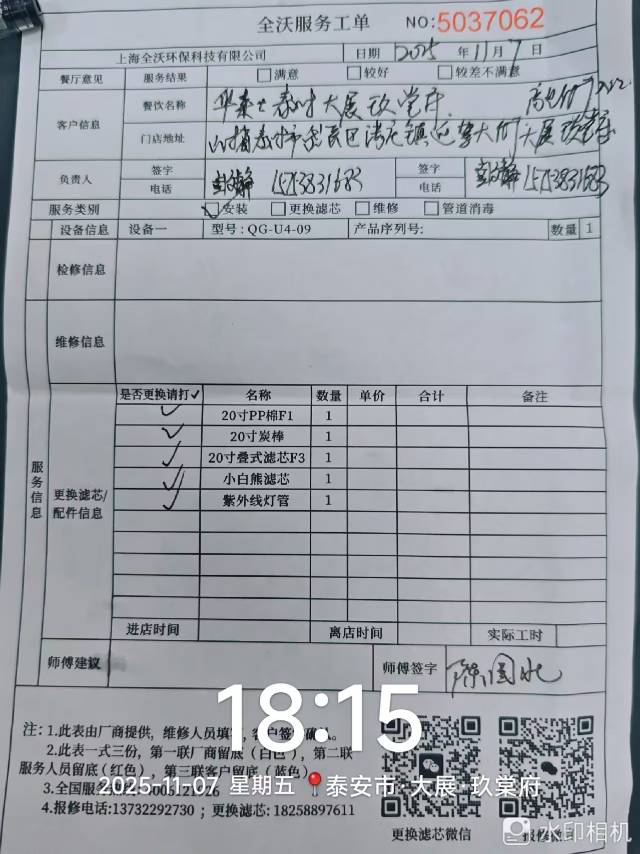 全沃服务工单 NO:5037062
上海全沃环保科技有限公司 日期 2025 年 11 月 7 日
餐厅意见 服务结果 满意 较好 较差不满意
客户信息 餐饮名称 大展玖棠府
门店地址 大展玖棠府
负责人 签字 签字
电话 15753831683 电话 15753831683
服务类别 安装 更换滤芯 维修 管道消毒
设备信息 设备一 型号:QG-U4-09 产品序列号: 数量 1
检修信息
维修信息
服务信息
更换滤芯/配件信息
是否更换请打✓ 名称 数量 单价 合计 备注
✓ 20寸PP棉F1 1
✓ 20寸炭棒 1
✓ 20寸叠式滤芯F3 1
✓ 小白熊滤芯 1
✓ 紫外线灯管 1
进店时间 离店时间 实际工时
师傅建议 师傅签字
18:15
注:1.此表由厂商提供,维修人员填写,客户签字确认。
2.此表一式三份,第一联厂商留底(白色),第二联
服务人员留底(红色),第三联客户留底(蓝色)
3.全国服务
2025-11-07 星期五 泰安市·大展·玖棠府
4.报修电话:13732292730;更换滤芯:18258897611
更换滤芯微信 报修微信
水印相机